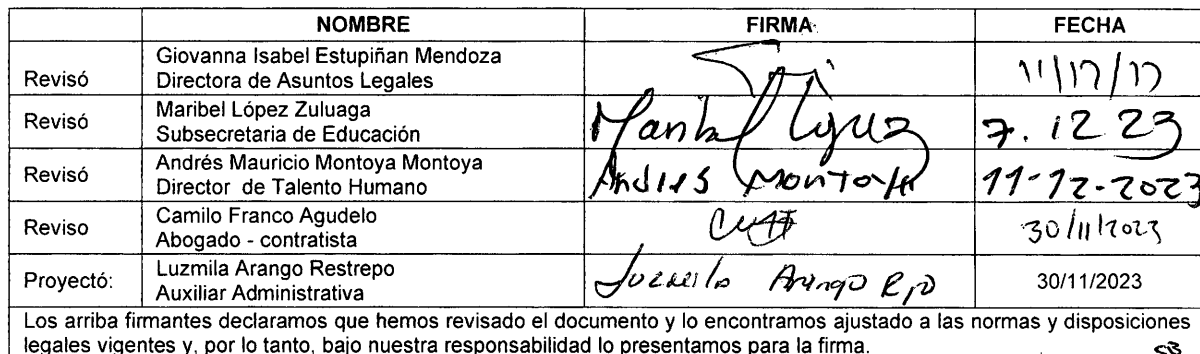 NOMBRE FIRMA FECHA
Giovanna Isabel Estupiñan Mendoza
Revisó Directora de Asuntos Legales
Maribel López Zuluaga
Revisó Subsecretaria de Educación Maribel López 7.12 23
Andrés Mauricio Montoya Montoya
Revisó Director de Talento Humano Andres Montoya 11-12-2023
Camilo Franco Agudelo
Reviso Abogado - contratista 30/11/2023
Luzmila Arango Restrepo
Proyectó: Auxiliar Administrativa Luzmila Arango Rpo 30/11/2023
Los arriba firmantes declaramos que hemos revisado el documento y lo encontramos ajustado a las normas y disposiciones
legales vigentes y, por lo tanto, bajo nuestra responsabilidad lo presentamos para la firma.